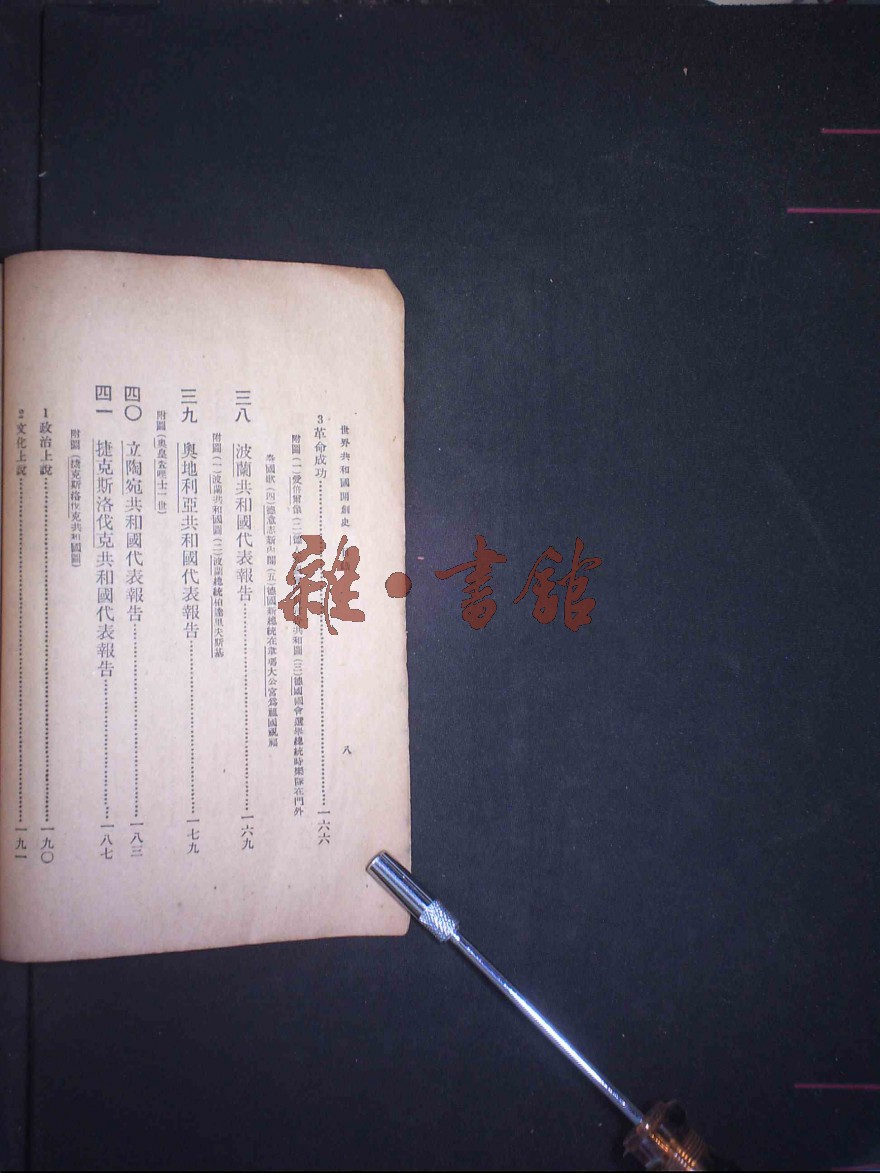 世界共和國開創史
八
3 革命成功……一六六
附圖(一)愛倍爾像(二)德 共和圖(三)德國國會選舉總統時團隊在門外
奏國歌(四)德意志新內閣(五)德國新總統在 大公宮為 國祝福
三八 波蘭共和國代表報告……一六九
附圖(一)波蘭共和國圖(二)波蘭總統 夫斯基
三九 奧地利亞共和國代表報告……一七九
附圖(奧皇查理士一世)
四〇 立陶宛共和國代表報告……一八三
四一 捷克斯洛伐克共和國代表報告……一八七
附圖(捷克斯洛伐克共和國圖)
1 政治上說……一九〇
2 文化上說……一九一
雜·書館